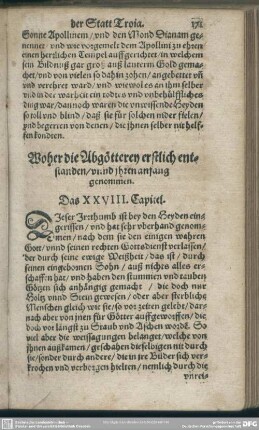 der Statt Troia.
Sonne Apollinem / vnd den Mond Dianam ge-
nennet / vnd wie vorgemelt dem Apollini zu ehren
einen herrlichen Tempel auffgerichtet / in welchem
sein Bildnuß gar groß auß lauterm Gold gemachet /
vnd von vielen so dahin zohen / angebetet vñ
vnd verehret ward / vnd wiewol es an ihm selber
vnd in der warheit ein todtes vnd vnbehülffliches
ding war / dannoch waren die vnwissende Heyden
so toll vnd blind / daß sie für solchen nider fielen /
vnd begerten von denen / die jhnen selber nit helf-
fen kondten.
Woher die Abgötterey erstlich ent-
standen / vnnd jhren anfang
genommen.
Das XXVIII. Capitel.
Dieser Jrrthumb ist bey den Heyden ein-
gerissen / vnd hat sehr vberhand genom-
men / nach dem sie den einigen wahren
Gott / vnnd seinen rechten Gottsdienst verlassen /
der durch seine ewige Weißheit / das ist / durch
seinen eingebornen Sohn / auß nichts alles er-
schaffen hat / vnd haben den stummen vnd tauben
Götzen sich anhängig gemacht / die doch nur
Holtz vnnd Stein gewesen / oder aber sterbliche
Menschen gleich wie sie / so vor zeiten gelebt / dar-
nach aber von jnen für Götter auffgeworffen / die
doch vorlängst zu Staub vnd Aschen wordẽ. So
viel aber die weissagungen belanget / welche von
jhnen außkamen / geschahen dieselbigen nit durch
sie / sonder durch andere / die in jre Bilder sich ver-
krochen vnd verborgen hielten / nemlich durch die
vnrei-
DFG